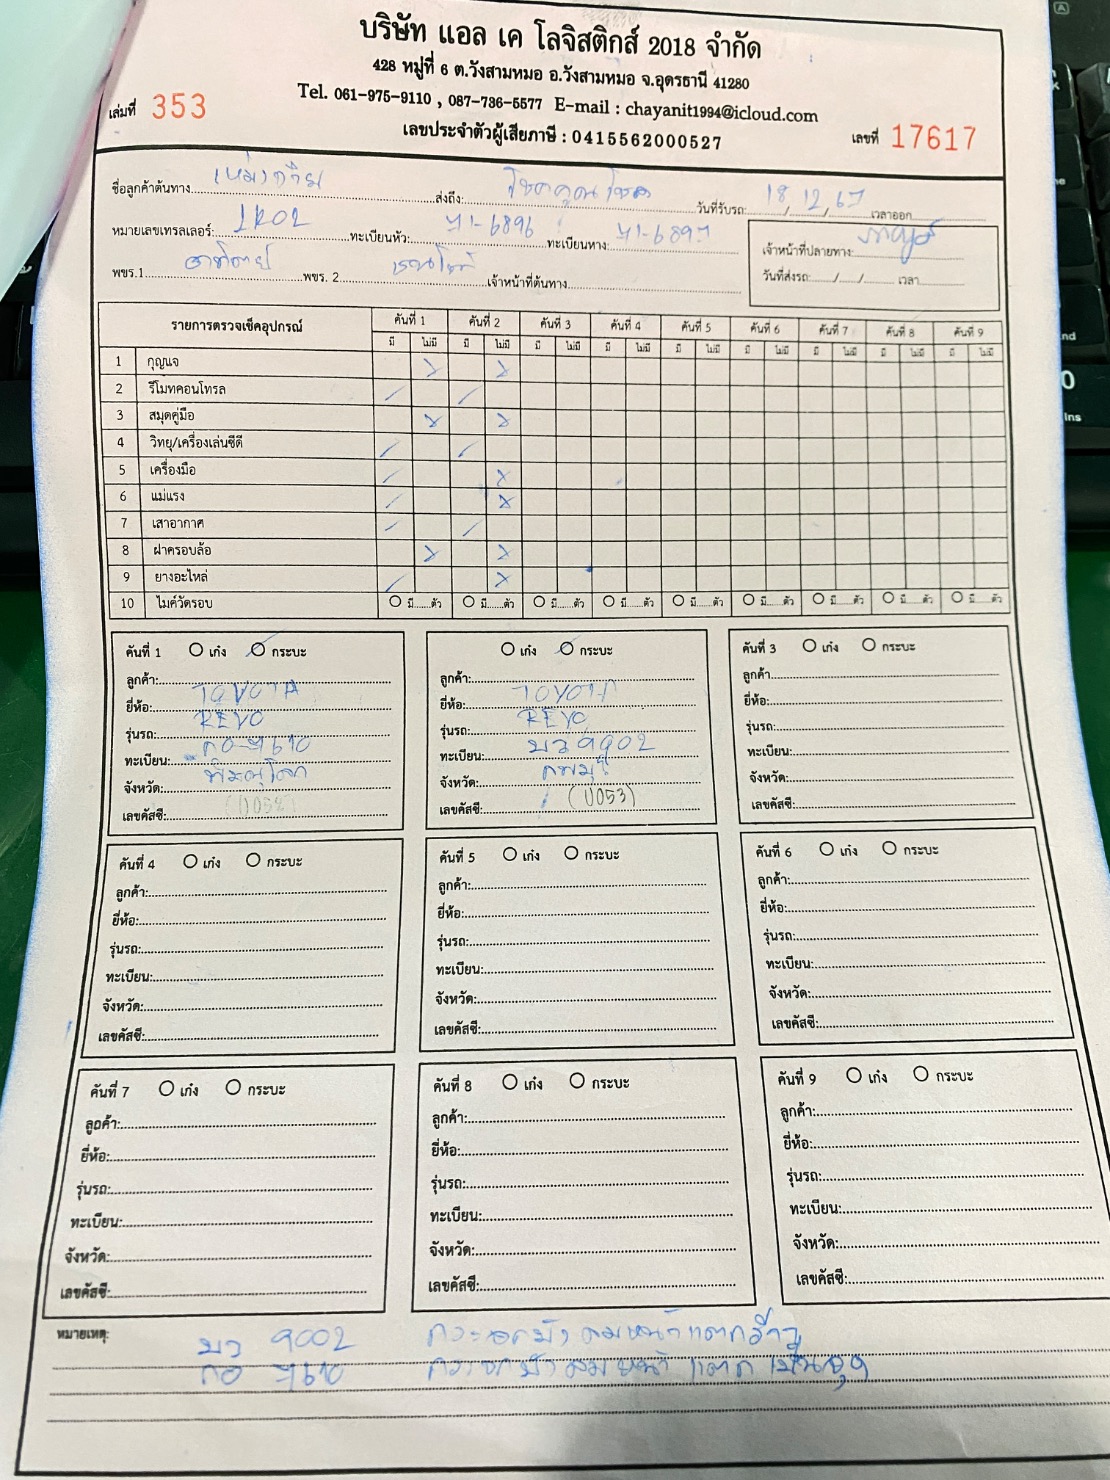 บริษัท แอล เค โลจิสติกส์ 2018 จำกัด
428 หมู่ที่ 6 ต.วังสามหมอ อ.วังสามหมอ จ.อุดรธานี 41280
Tel. 061-975-9110 , 087-736-5577 E-mail : chayanit1994@icloud.com
เล่มที่ 353
เลขประจำตัวผู้เสียภาษี : 0415562000527
เลขที่ 17617
ชื่อลูกค้าต้นทาง ส่งถึง: โชคคูณโชค วันที่รับรถ: 18/12/67 เวลาออก
หมายเลขเทรลเลอร์: LK02 ทะเบียนหัว: 71-6896 ทะเบียนหาง: 71-6897
เจ้าหน้าที่ปลายทาง:
พขร.1 อาทิตย์ พขร. 2 เจ้าหน้าที่ต้นทาง
วันที่ส่งรถ:....../....../...... เวลา
รายการตรวจเช็คอุปกรณ์ คันที่ 1 คันที่ 2 คันที่ 3 คันที่ 4 คันที่ 5 คันที่ 6 คันที่ 7 คันที่ 8 คันที่ 9
มี ไม่มี มี ไม่มี มี ไม่มี มี ไม่มี มี ไม่มี มี ไม่มี มี ไม่มี มี ไม่มี มี ไม่มี
1 กุญแจ
2 รีโมทคอนโทรล
3 สมุดคู่มือ
4 วิทยุ/เครื่องเล่นซีดี
5 เครื่องมือ
6 แม่แรง
7 เสาอากาศ
8 ฝาครอบล้อ
9 ยางอะไหล่
10 ไมค์วัดรอบ มี......ตัว มี......ตัว มี......ตัว มี......ตัว มี......ตัว มี......ตัว มี......ตัว มี......ตัว มี......ตัว
คันที่ 1 เก๋ง กระบะ
ลูกค้า:
ยี่ห้อ: TOYOTA
รุ่นรถ: REVO
ทะเบียน:
จังหวัด: พิษณุโลก
เลขคัสซี: (0052)
เก๋ง กระบะ
ลูกค้า:
ยี่ห้อ: TOYOTA
รุ่นรถ: REVO
ทะเบียน: บว 9002
จังหวัด: ลพบุรี
เลขคัสซี: (0053)
คันที่ 3 เก๋ง กระบะ
ลูกค้า
ยี่ห้อ:
รุ่นรถ:
ทะเบียน:
จังหวัด:
เลขคัสซี:
คันที่ 4 เก๋ง กระบะ
ลูกค้า:
ยี่ห้อ:
รุ่นรถ:
ทะเบียน:
จังหวัด:
เลขคัสซี:
คันที่ 5 เก๋ง กระบะ
ลูกค้า:
ยี่ห้อ:
รุ่นรถ:
ทะเบียน:
จังหวัด:
เลขคัสซี:
คันที่ 6 เก๋ง กระบะ
ลูกค้า:
ยี่ห้อ:
รุ่นรถ:
ทะเบียน:
จังหวัด:
เลขคัสซี:
คันที่ 7 เก๋ง กระบะ
ลูกค้า:
ยี่ห้อ:
รุ่นรถ:
ทะเบียน:
จังหวัด:
เลขคัสซี:
คันที่ 8 เก๋ง กระบะ
ลูกค้า:
ยี่ห้อ:
รุ่นรถ:
ทะเบียน:
จังหวัด:
เลขคัสซี:
คันที่ 9 เก๋ง กระบะ
ลูกค้า:
ยี่ห้อ:
รุ่นรถ:
ทะเบียน:
จังหวัด:
เลขคัสซี:
หมายเหตุ: บว 9002 กระจกบังลมหน้าแตกร้าว
กระจกบังลมหน้า แตก เป็นจุด